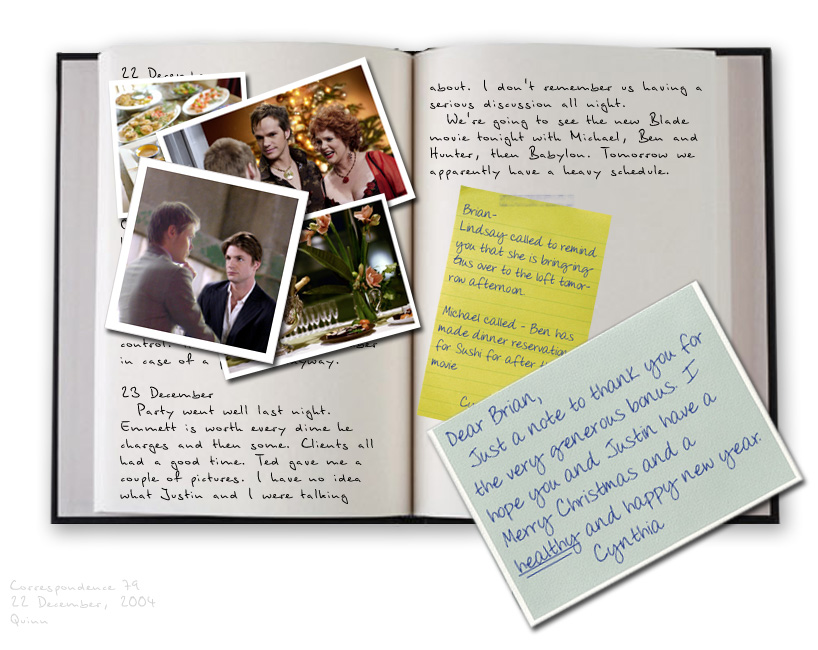 22 December
control.
in case of a
23 December
Party went well last night.
Emmett is worth every dime he
charges and then some. Clients all
had a good time. Ted gave me a
couple of pictures. I have no idea
what Justin and I were talking
about. I don't remember us having a
serious discussion all night.
We're going to see the new Blade
movie tonight with Michael, Ben and
Hunter, then Babylon. Tomorrow we
apparently have a heavy schedule.
Brian-
Lindsay called to remind
you that she is bringing
Gus over to the loft tomor-
row afternoon.
Michael called - Ben has
made dinner reservation
for Sushi for after
movie
Dear Brian,
Just a note to thank you for
the very generous bonus. I
hope you and Justin have a
Merry Christmas and a
healthy and happy new year.
Cynthia
Correspondence 79
22 December, 2004
Quinn